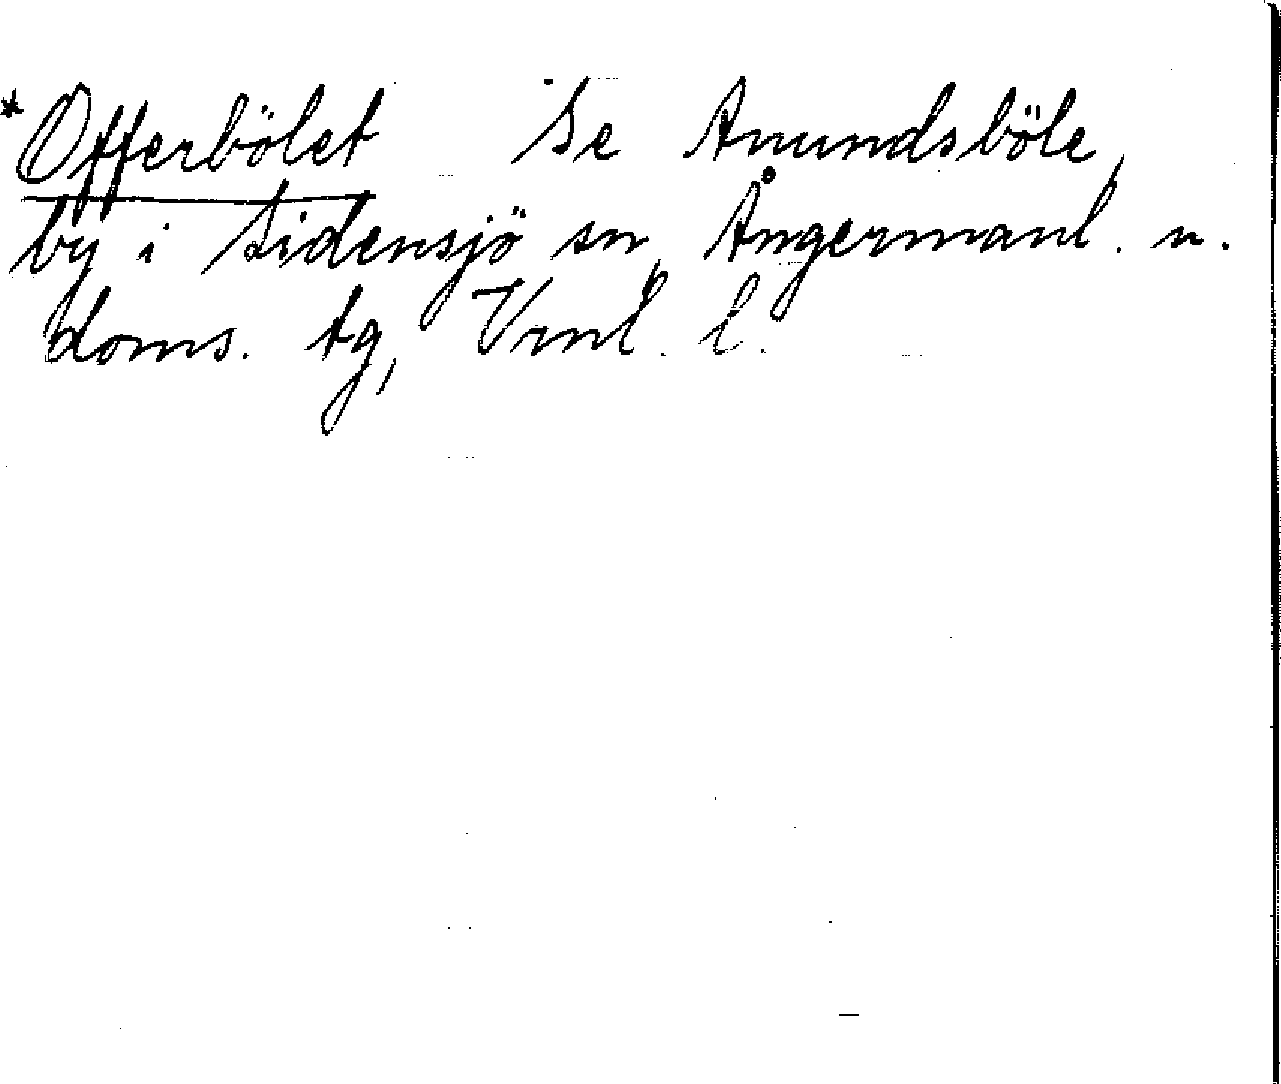 *Offerbölet Se Anundsböle,
by i Sidensjö sn, Ångermanl. n.
doms. tg, Vrnl. l.